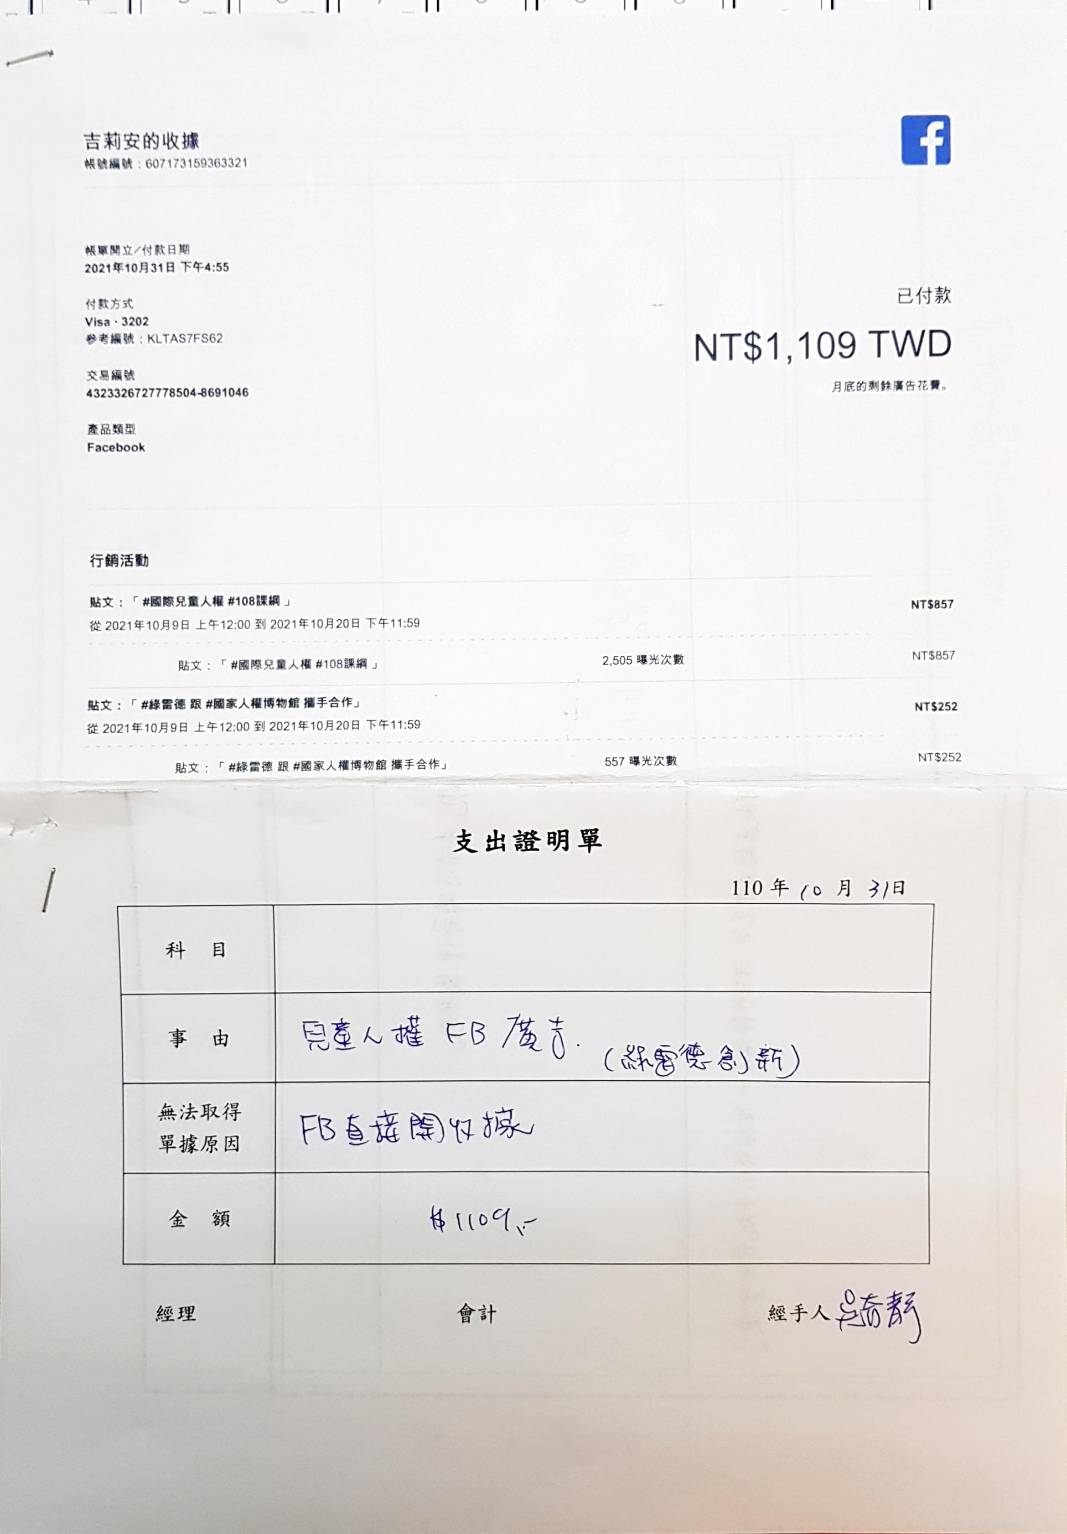 吉莉安的收據
帳號編號：607173159363321
帳單開立/付款日期
2021年10月31日 下午4:55
付款方式
Visa · 3202
參考編號：KLTAS7FS62
交易編號
4323326727778504-8691046
產品類型
Facebook
已付款
NT$1,109 TWD
月底的剩餘廣告花費。
行銷活動
貼文：「 #國際兒童人權 #108課綱 」 NT$857
從 2021年10月9日 上午12:00 到 2021年10月20日 下午11:59
貼文：「 #國際兒童人權 #108課綱 」 2,505 曝光次數 NT$857
貼文：「 #綠雷德 跟 #國家人權博物館 攜手合作」 NT$252
從 2021年10月9日 上午12:00 到 2021年10月20日 下午11:59
貼文：「 #綠雷德 跟 #國家人權博物館 攜手合作」 557 曝光次數 NT$252
支出證明單
110 年 10 月 31日
科 目
事 由 兒童人權 FB 廣告.
(綠雷德創新)
無法取得
單據原因 FB直接開收據
金 額 $1109.-
經理 會計 經手人